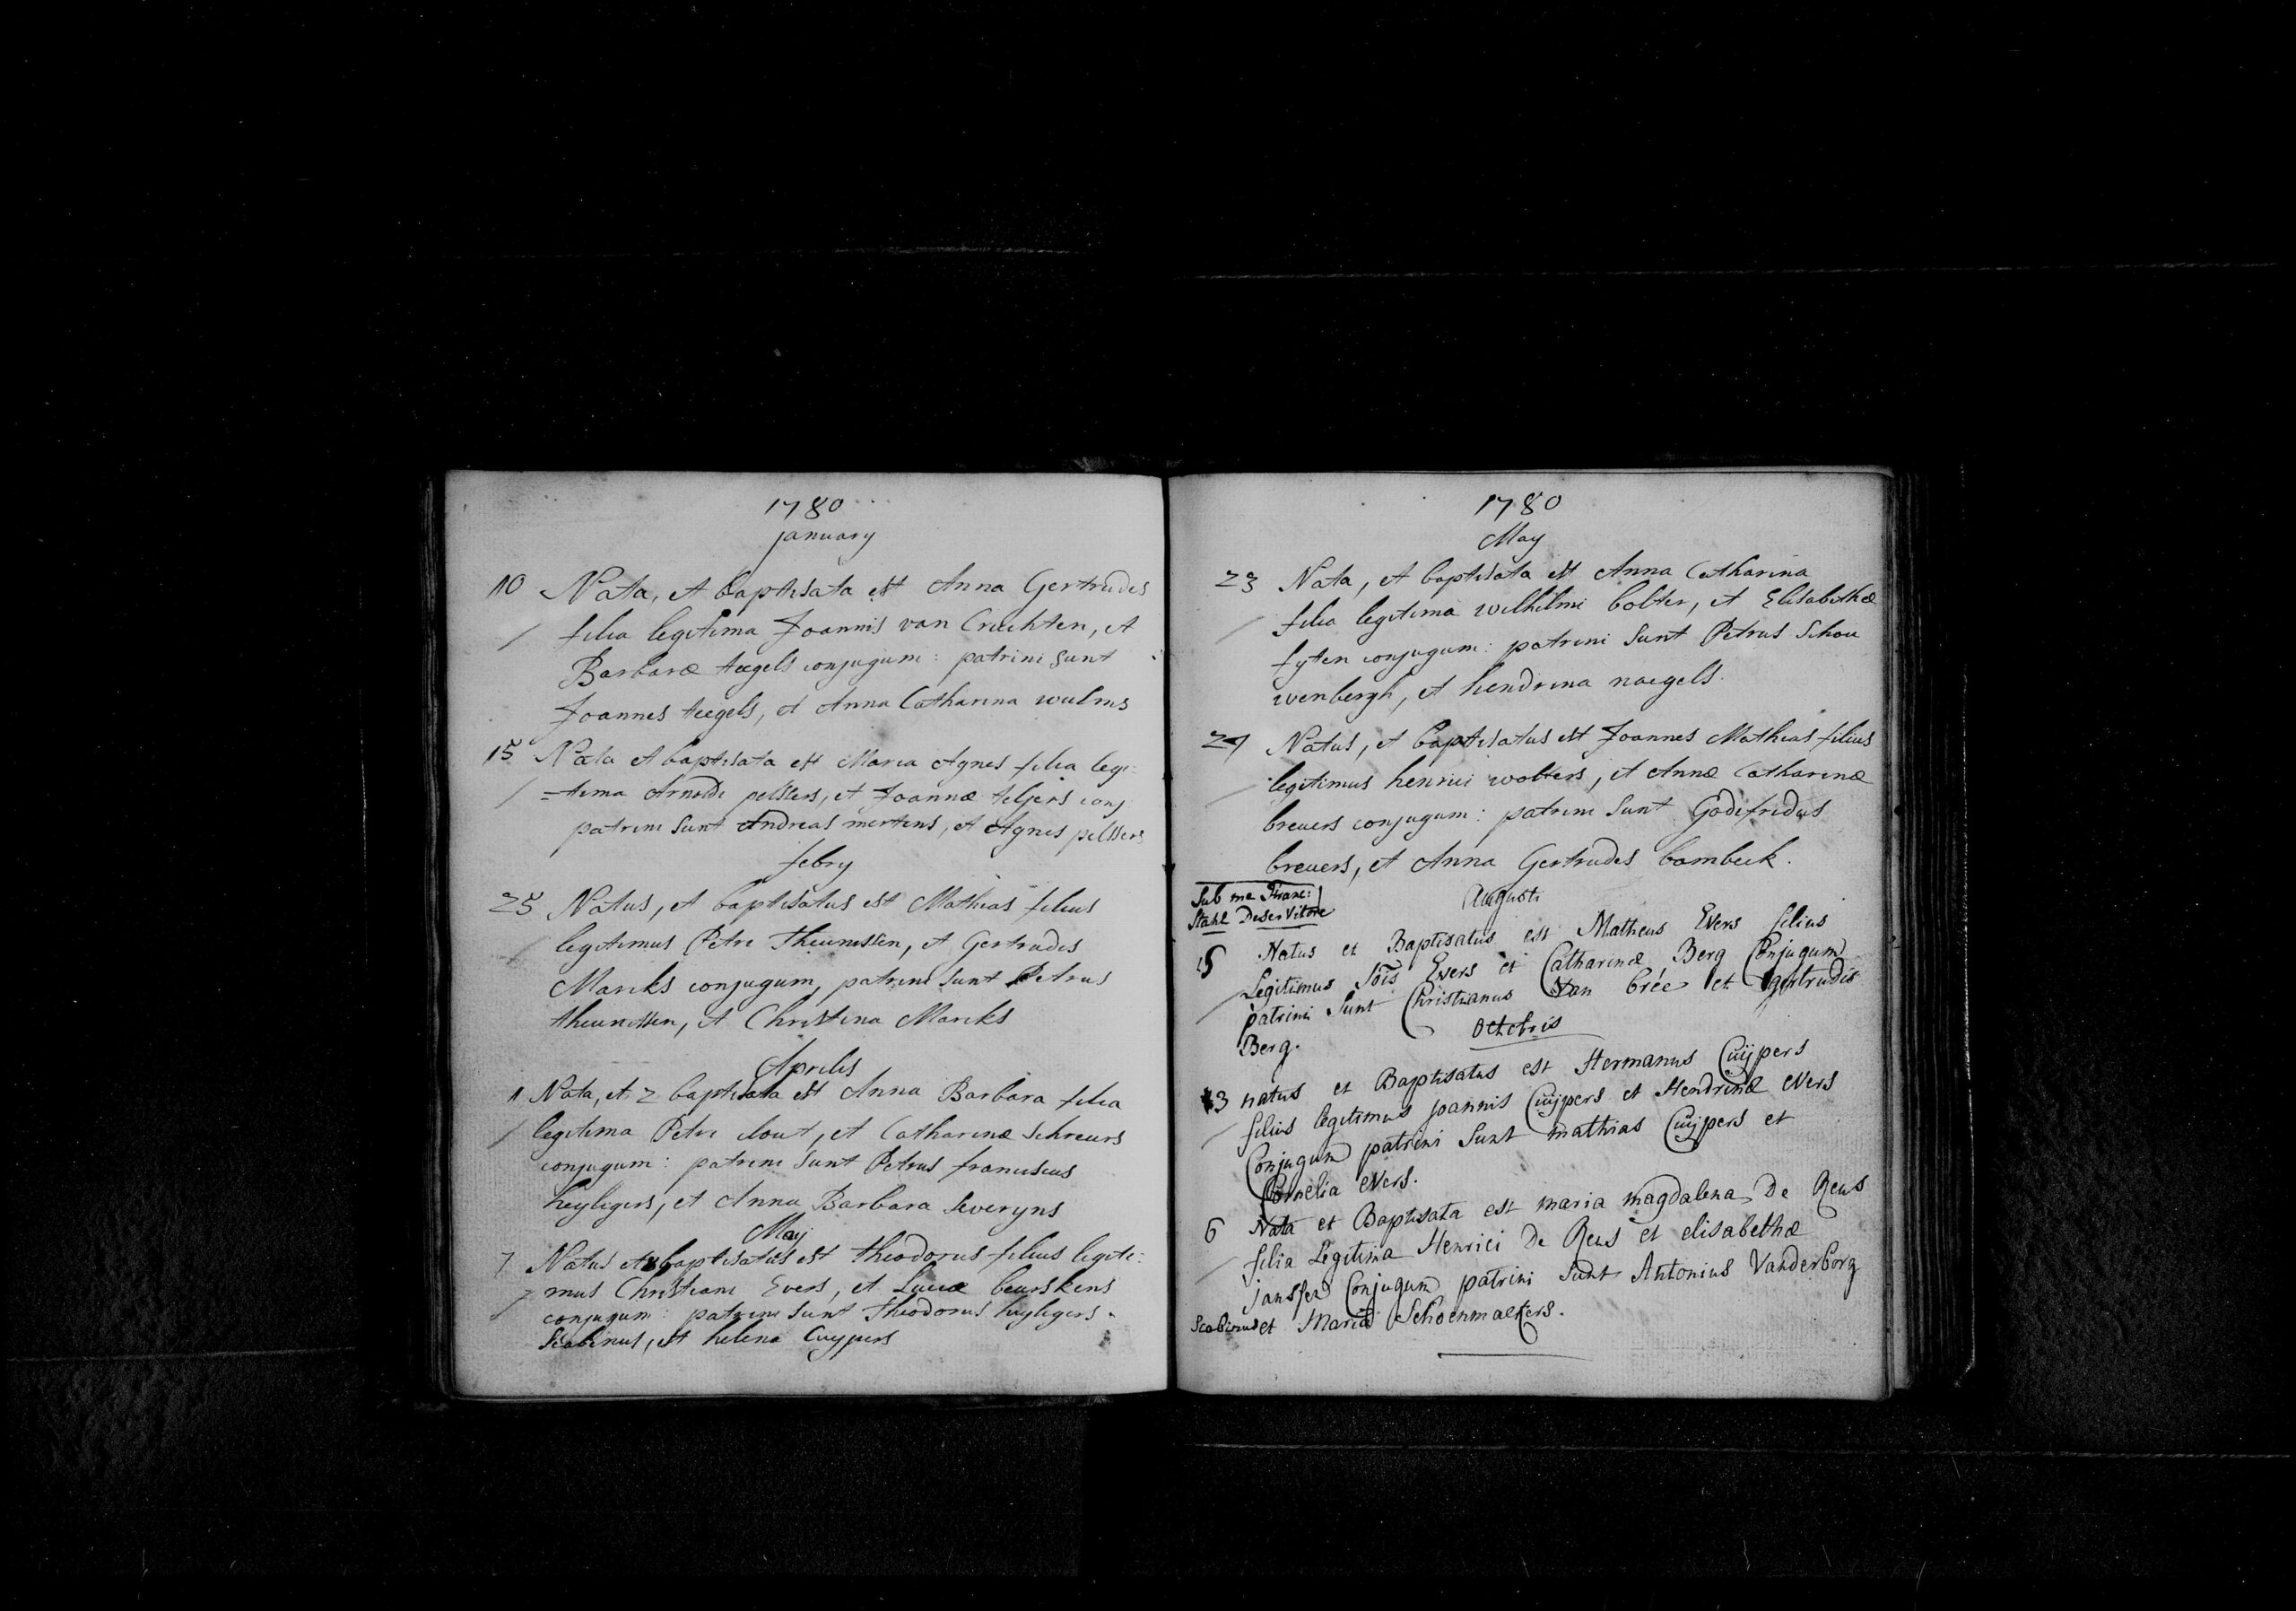 1780
january
10 Nata, et baptisata est Anna Gertrudis
filia legitima Joannis van Cruchten, et
Barbaræ tegels conjugum: patrini sunt
Joannes tegels, et Anna Catharina wulms
15 Nata et baptisata est Maria Agnes filia legi-
=tima Arnoldi pelssers, et Joannæ conj:
patrini sunt Andreas mertens, et Agnes pelssers
febry
25 Natus, et baptisatus est Mathias filius
legitimus Petri Theunissen, et Gertrudis
Marcks conjugum, patrini sunt Petrus
theunissen, et Christina Marcks
Aprilis
1 Nata, et 2 baptisata est Anna Barbara filia
legitima Petri clout, et Catharinæ Schreurs
conjugum: patrini sunt Petrus franciscus
heyligers, et Anna Barbara Severyns
May
7 Natus et baptisatus est theodorus filius legiti:
mus Christiani Evers, et Luciæ beurskens
conjugum: patrini sunt theodorus heyligers
Scabinus, et helena Cuypers
1780
May
23 Nata, et baptisata est Anna Catharina
filia legitima wilhelmi bolten, et Elisabethæ
fyten conjugum: patrini sunt Petrus Schou
wenbergh, et hendrina naegels.
Natus, et baptisatus est Joannes Mathias filius
legitimus henrici wolters, et Annæ Catharinæ
breuers conjugum: patrini sunt Godefridus
breuers, et Anna Gertrudis bambeck.
Sub me Franc:
Stahl Deservitore
Augusti
Natus et Baptisatus est Matheus Evers filius
Legitimus Jois Evers et Catharinæ Berg Conjugum
patrini Sunt Christianus Van brée et gertrudis
Berg.
Octobris
3 natus et Baptisatus est Hermanus Cuijpers
filius legitimus joannis Cuijpers et Hendrinæ eVers
Conjugum patrini Sunt mathias Cuijpers et
Cornelia eVers.
6 Nata et Baptisata est maria magdalena De Reus
filia Legitima Henrici De Reus et elisabethæ
jansSen Conjugum patrini Sunt Antonius Vanderborg
Scabinus et Maria Schoenmaekers.